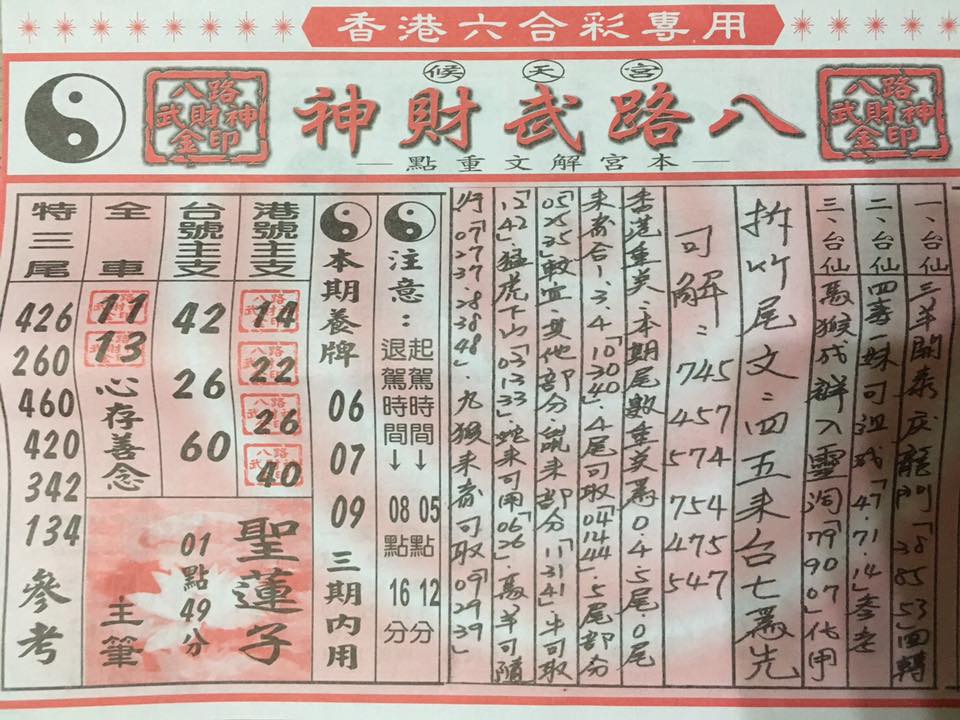 香港六合彩專用
候天宮
八路武財神
本宮解文重點
八路武財神金印
八路武財神金印
一、台仙三羊開泰庆龍门「38 85 53」四轉
二、台仙四春一妹可退残「47.71.14」参走
三、台仙馬猴成群入靈洞「79 90 07」代用
拆竹尾文:四五来台七為先
可解:745 457 574 754 475 547
香港重类:本期尾數重类為0.4.5尾.0尾
来者合1.3.4「10 30 40」.4尾可取「04 14 44」.5尾部分
「05 25 35」較宜.其他部分:鼠来部分「11 31 41」牛可取
「15 42」.猛虎下山「03 13 33」.蛇来可用「06 26」.馬羊可隨
「07 27 37.28 38 48」.九猴来者可取「09 29 39」
注意:
起駕時間→05點12分
退駕時間→08點16分
本期養牌 06 07 09 三期內用
港號主支
14
22
26
40
台號主支
42
26
60
全車
11
13
心存善念
聖蓮子
01點49分
主筆
特三尾
426
260
460
420
342
134
參考